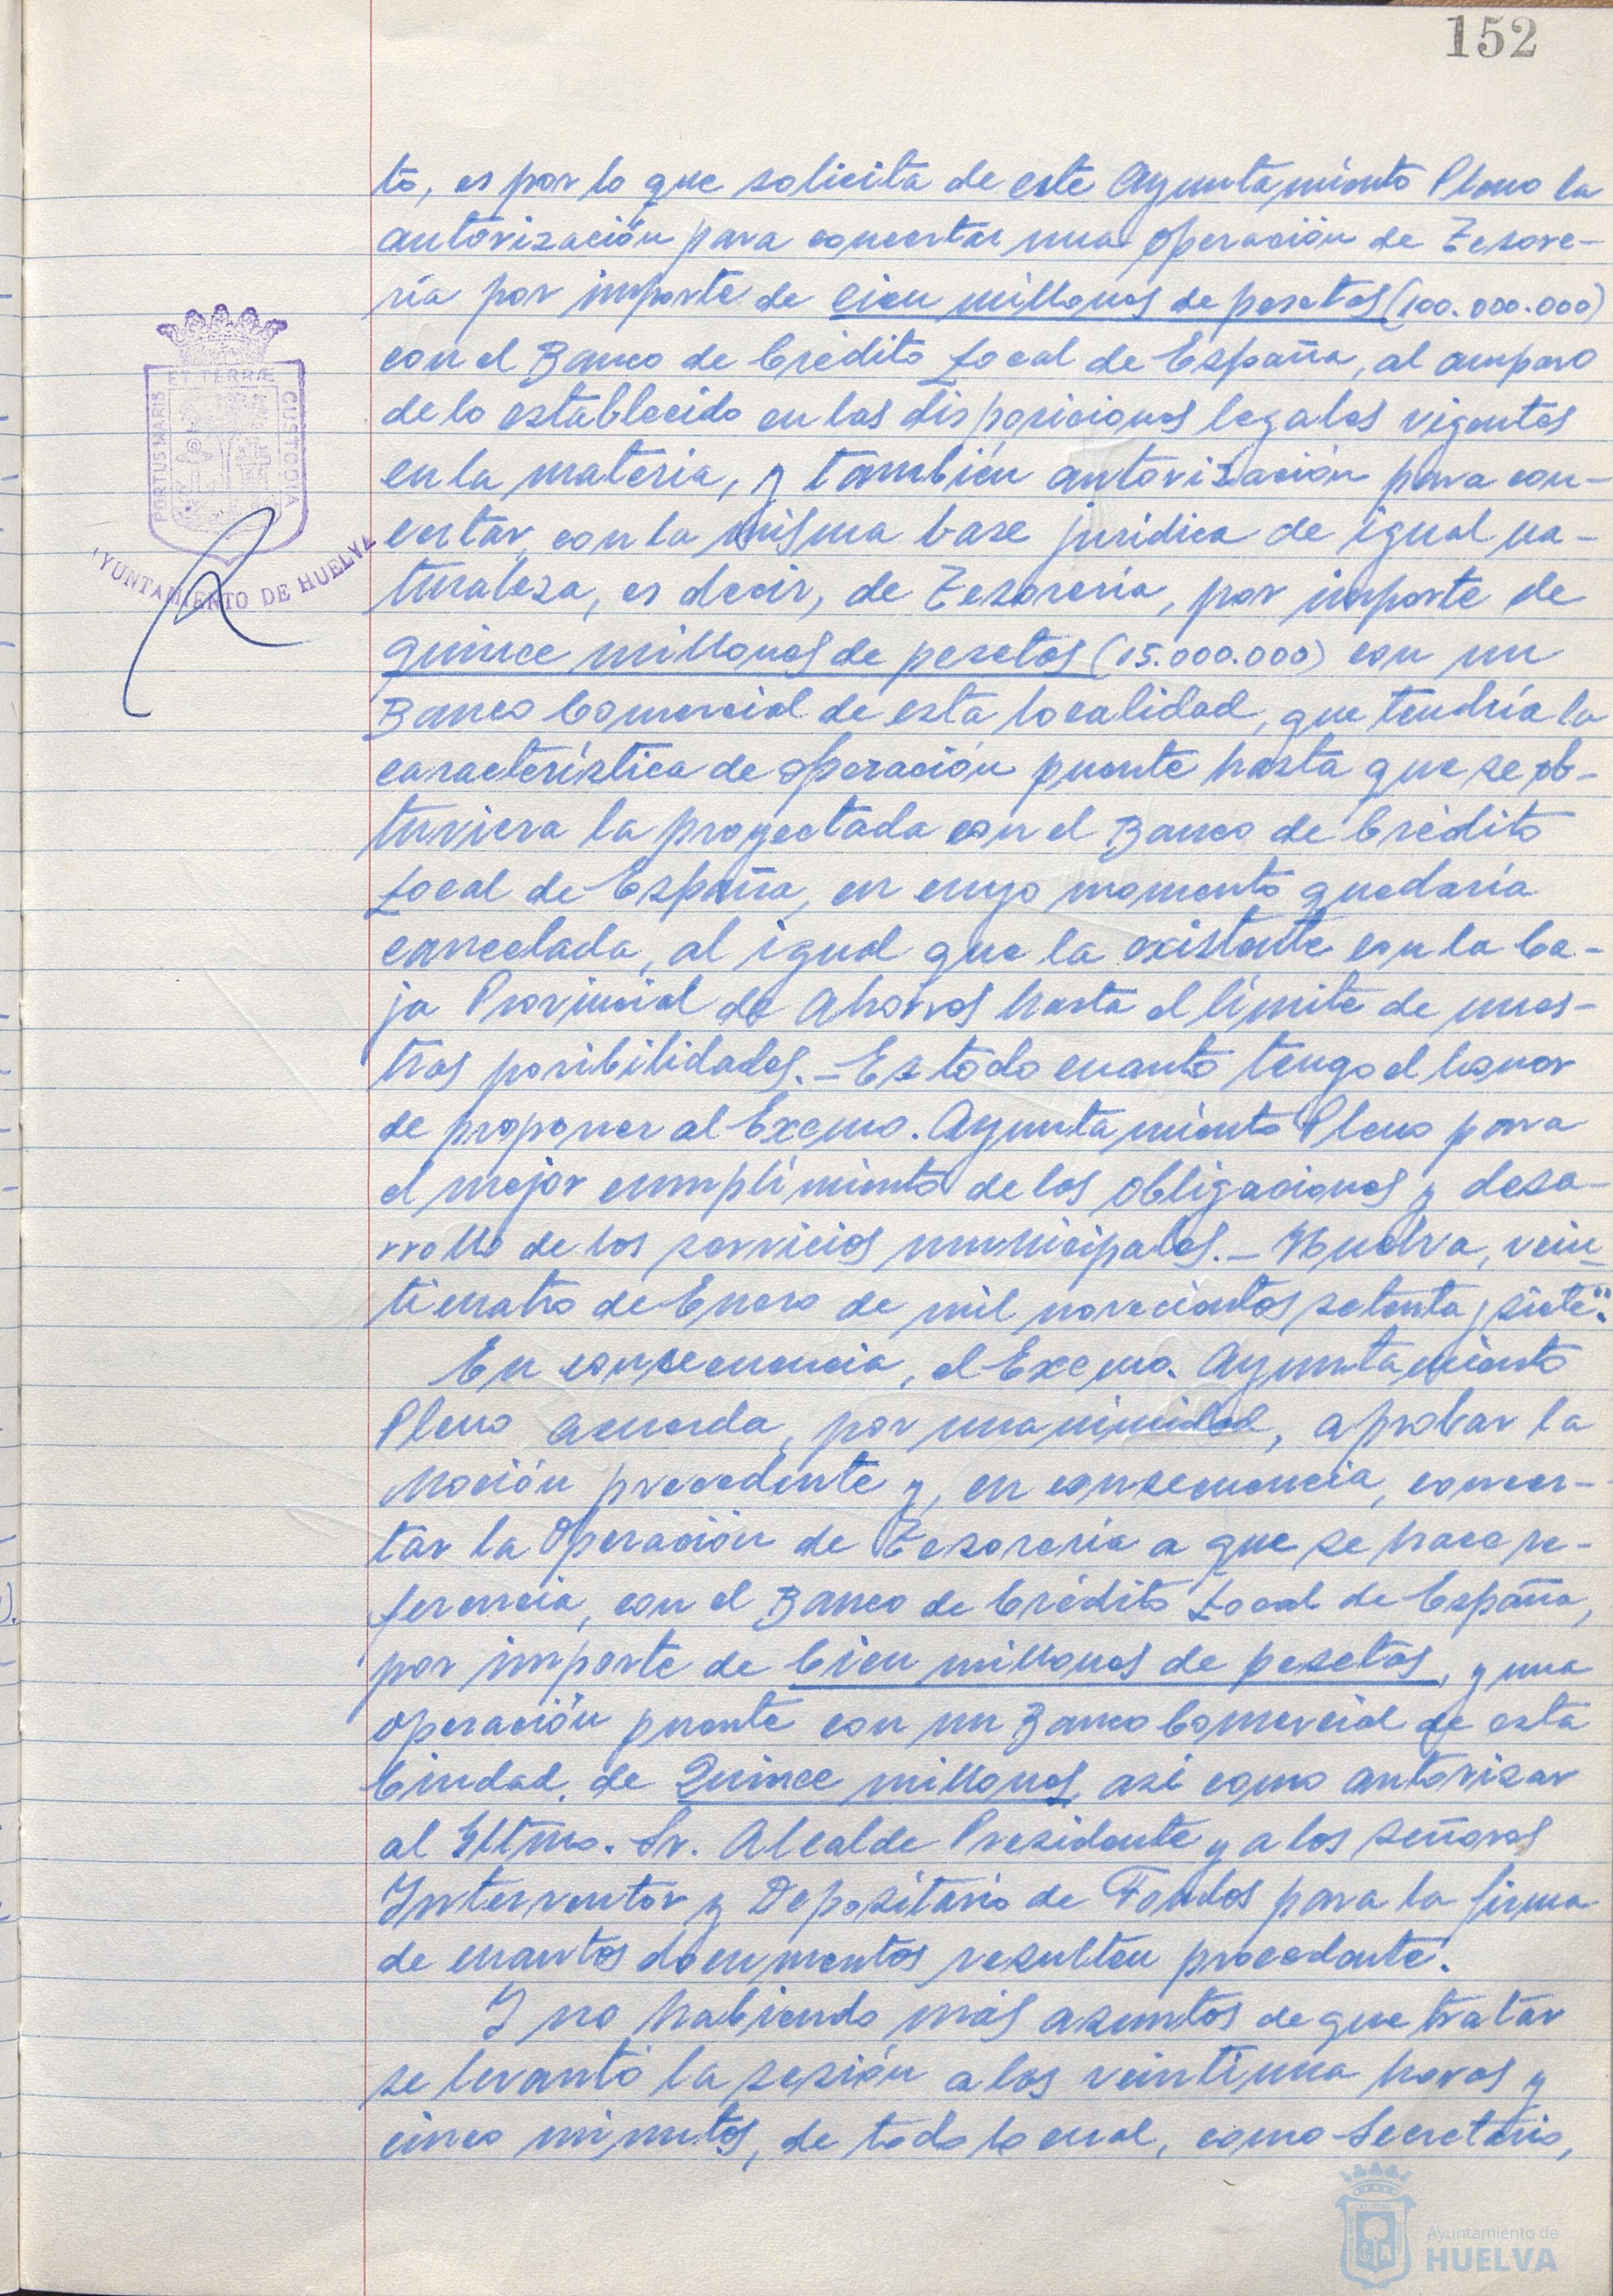 152
to, es por lo que solicita de este Ayuntamiento Pleno la
autorización para concertar una operación de Tesore-
ría por importe de cien millones de pesetas (100.000.000)
con el Banco de Crédito Local de España, al amparo
de lo establecido en las disposiciones legales vigentes
en la materia, y también autorización para con-
certar, con la misma base jurídica de igual na-
turaleza, es decir, de Tesorería, por importe de
quince millones de pesetas (15.000.000) con un
Banco Comercial de esta localidad, que tendría la
característica de operación puente hasta que se ob-
tuviera la proyectada con el Banco de Crédito
Local de España, en cuyo momento quedaría
cancelada, al igual que la existente con la Ca-
ja Provincial de Ahorros hasta el límite de nues-
tras posibilidades.- Es todo cuanto tengo el honor
de proponer al Excmo. Ayuntamiento Pleno para
el mejor cumplimiento de las obligaciones y desa-
rrollo de los servicios municipales.- Huelva, vein-
ticuatro de Enero de mil novecientos setenta y siete".
En consecuencia, el Excmo. Ayuntamiento
Pleno acuerda, por unanimidad, aprobar la
Moción precedente y, en consecuencia, concer-
tar la Operación de Tesorería a que se hace re-
ferencia, con el Banco de Crédito Local de España,
por importe de Cien millones de pesetas, y una
operación puente con un Banco Comercial de esta
Ciudad, de Quince millones, así como autorizar
al Iltmo. Sr. Alcalde Presidente y a los señores
Interventor y Depositario de Fondos para la firma
de cuantos documentos resulten procedente.
Y no habiendo más asuntos de que tratar
se levantó la sesión a las veintiuna horas y
cinco minutos, de todo lo cual, como Secretario,
PORTUS MARIS
ET TERRÆ
CUSTODIA
AYUNTAMIENTO DE HUELVA
Ayuntamiento de
HUELVA